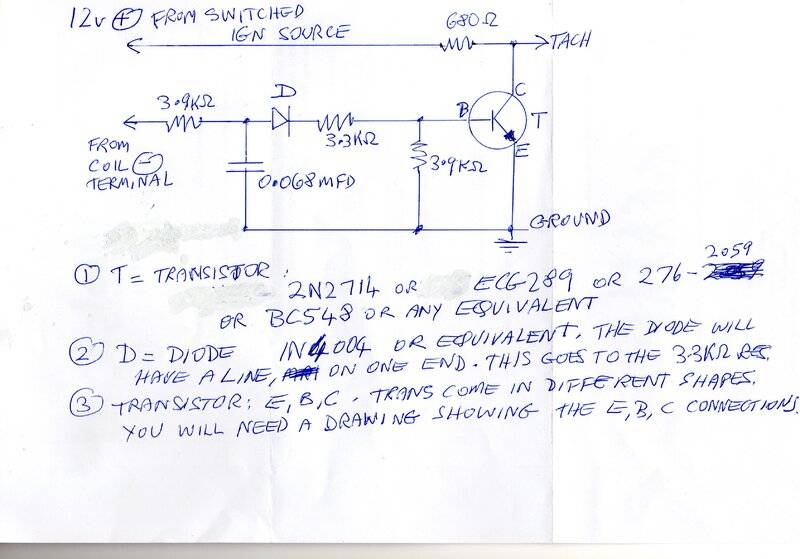 12v ⊕ FROM SWITCHED
IGN SOURCE
680Ω
TACH
3.9KΩ
D
C
B
T
E
3.3KΩ
3.9KΩ
FROM
COIL ⊖
TERMINAL
0.068MFD
GROUND
① T = TRANSISTOR:
2N2714 OR ECG289 OR 276-2059
OR BC548 OR ANY EQUIVALENT
② D = DIODE 1N4004 OR EQUIVALENT. THE DIODE WILL
HAVE A LINE, ON ONE END. THIS GOES TO THE 3.3KΩ RES.
③ TRANSISTOR: E, B, C. TRANS COME IN DIFFERENT SHAPES.
YOU WILL NEED A DRAWING SHOWING THE E, B, C CONNECTIONS.